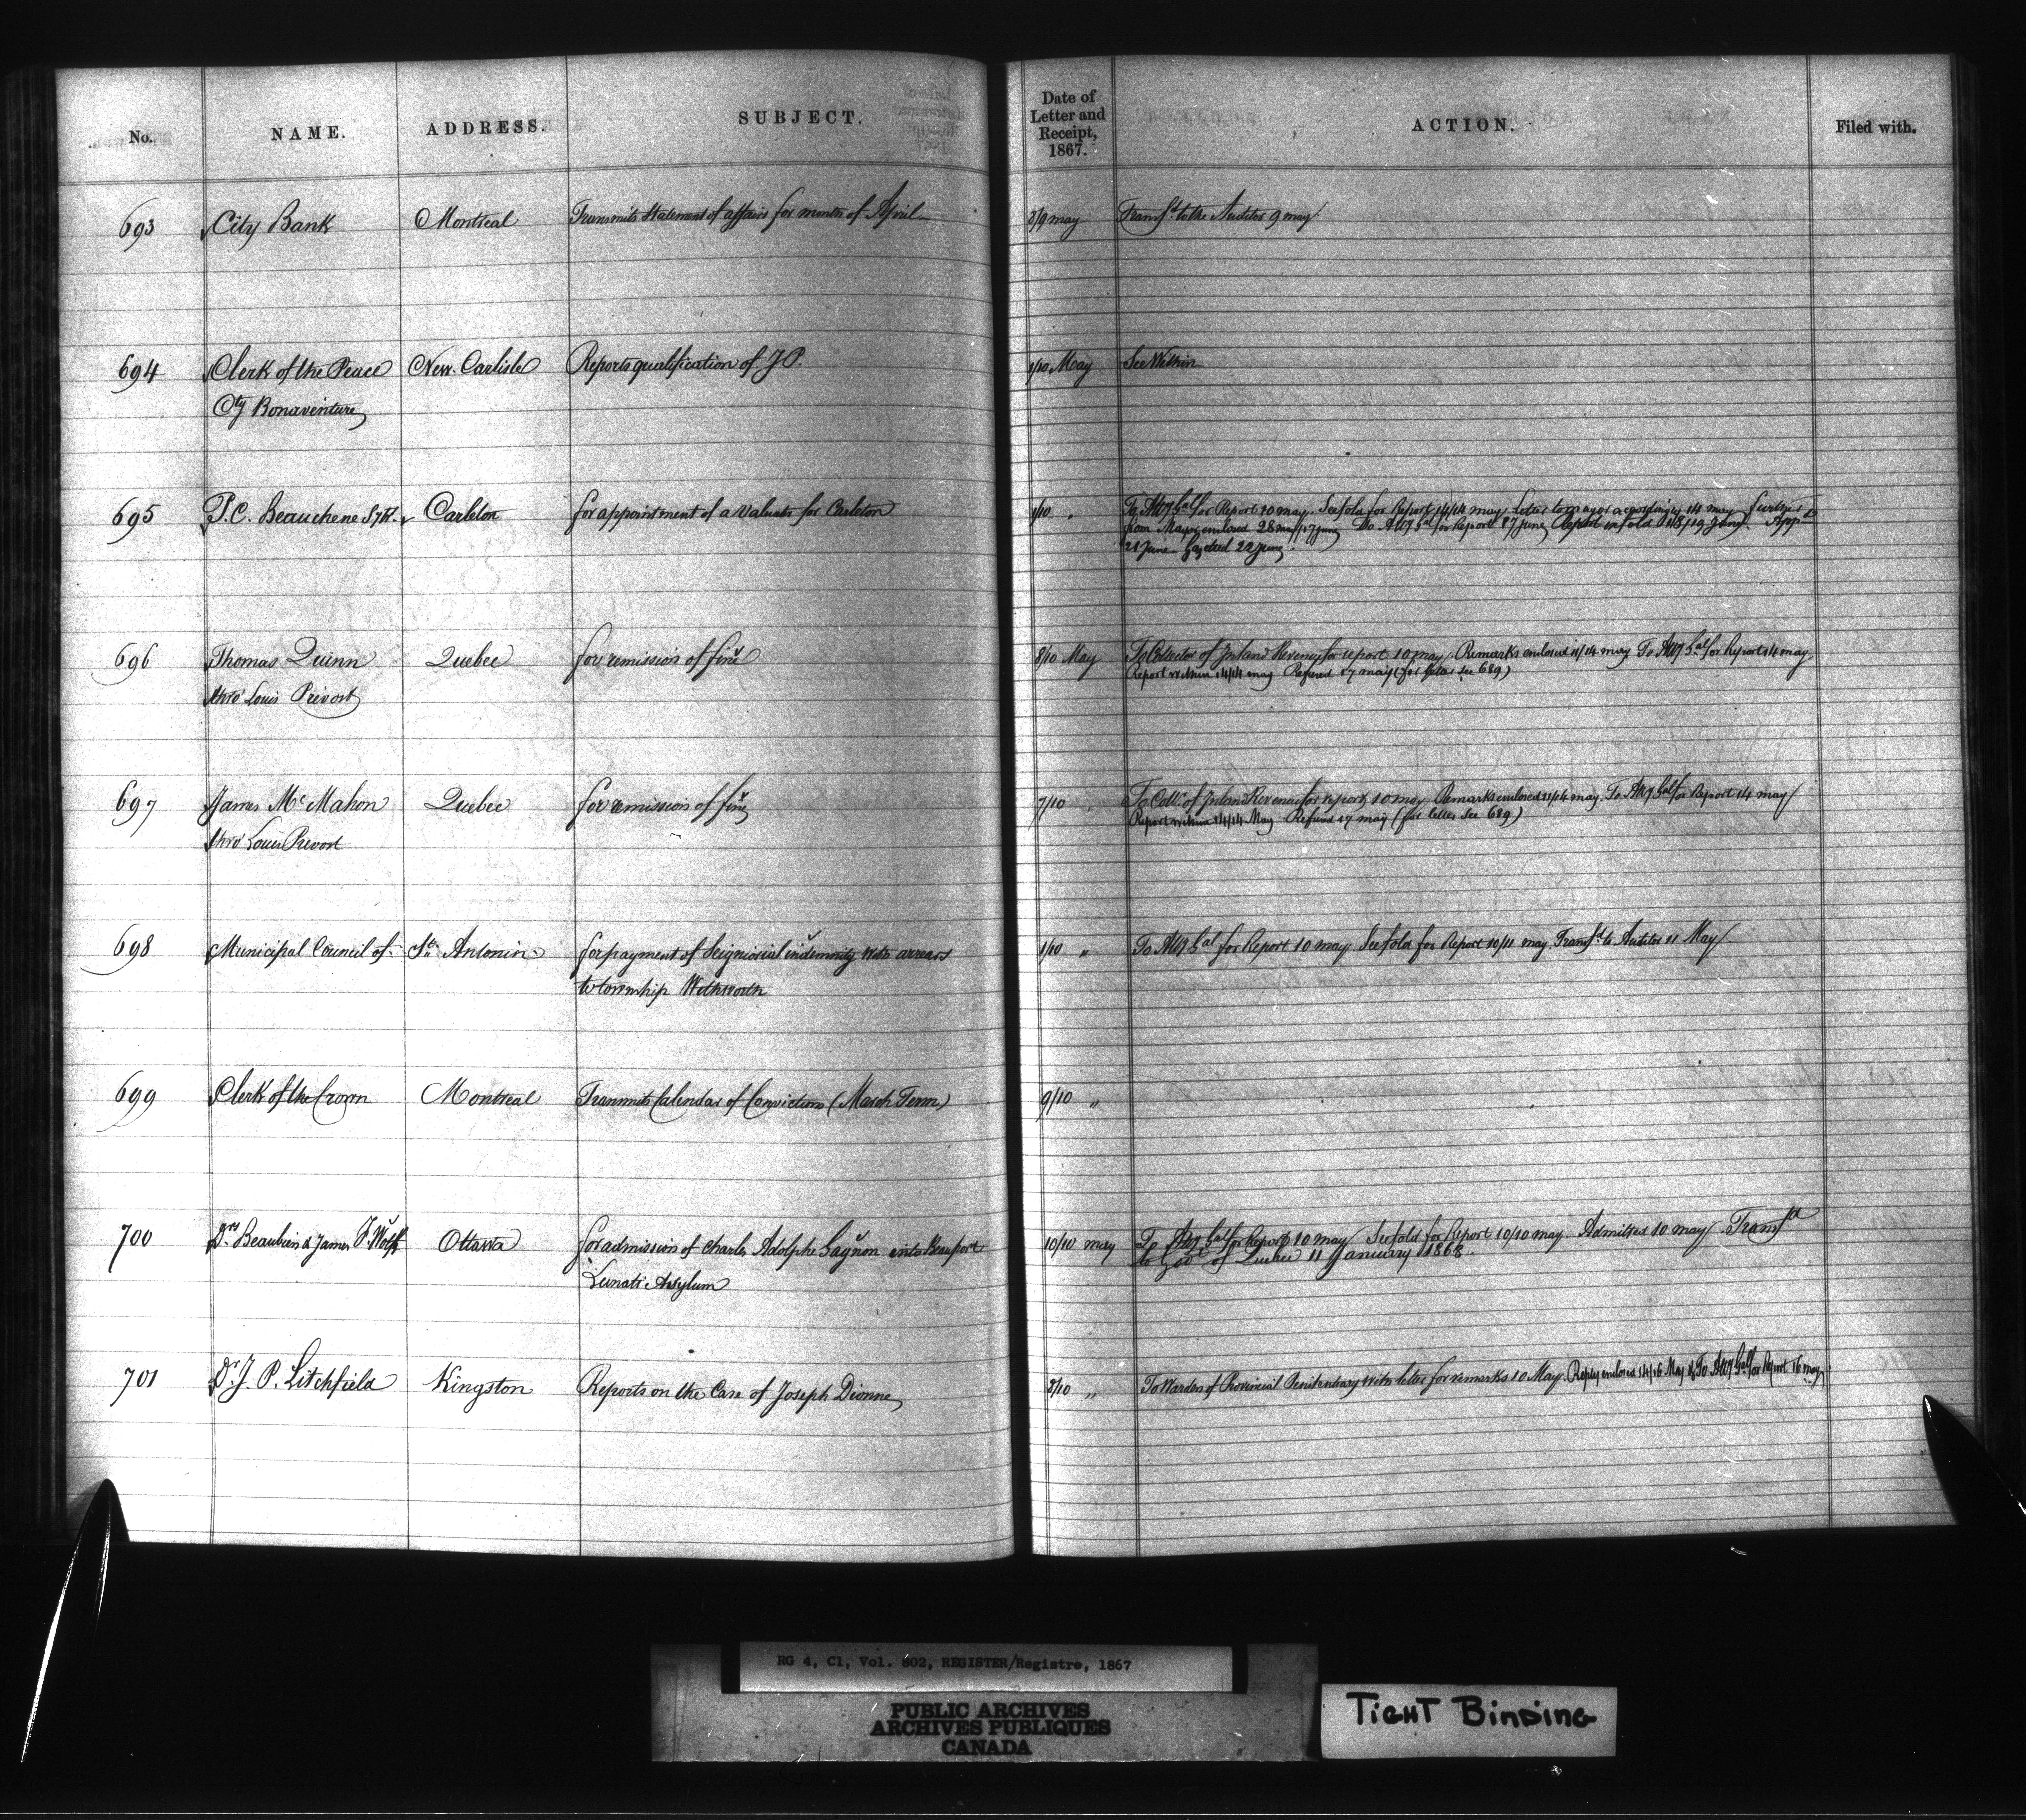 No. NAME. ADDRESS. SUBJECT. Date of Letter and Receipt, 1867. ACTION. Filed with.
693 City Bank Montreal Transmits Statement of affairs for month of April 8/9 may Transf^d to the Auditor 9 may
694 Clerk of the Peace New Carlisle Reports qualification of J P. 1/10 May See Within
Cty Bonaventure
695 P. C. Beauchene Carleton for appointment of a valuator for Carleton 1/10 " To Atty Gal for Report 10 may. See fold for Report 14/14 may Letter to mayor accordingly 14 may further
from Mayor enclosed 28 may/17 June To Atty Gal for Report 17 June Report in fold 18/19 June. App^d
21 June Gazetted 22 June.
696 Thomas Quinn Quebec for remission of fine 8/10 May To Collector of Inland Revenue for report 10 may. Remarks enclosed 11/14 may To Atty Gal for Report 14 may
thro' Louis Prévost Report within 14/14 may Refused 17 may (for letter see 689)
697 James McMahon Quebec for remission of fine 7/10 " To Coll^r of Inland Revenue for report 10 may Remarks enclosed 11/14 may. To Atty Gal for Report 14 may
thro' Louis Prevost Report within 14/14 May Refused 17 may (for letter see 689)
698 Municipal Council of St. Antonin for payment of Seigniorial indemnity with arrears 1/10 " To Atty Gal for Report 10 may See fold for Report 10/11 may Transf^d to Auditor 11 May
to township
699 Clerk of the Crown Montreal Transmits Calendar of Convictions (March Term) 9/10 "
700 Drs Beaubien & James P. Wolff Ottawa for admission of Charles Adolphe Gagnon into Beauport 10/10 may To Atty Gal for Report 10 may See fold for Report 10/10 may. Admitted 10 may Transf^d
Lunatic Asylum to Gov^t of Quebec 11 January 1868.
701 Dr J. P. Litchfield Kingston Reports on the Case of Joseph Dionne 8/10 " To Warden of Provincial Penitentiary with letter for remarks 10 May. Reply enclosed 14/16 May To Atty Gal for Report 16 may
RG 4, C1, Vol. 802, REGISTER/Registre, 1867
PUBLIC ARCHIVES
ARCHIVES PUBLIQUES
CANADA
TIGHT BINDING